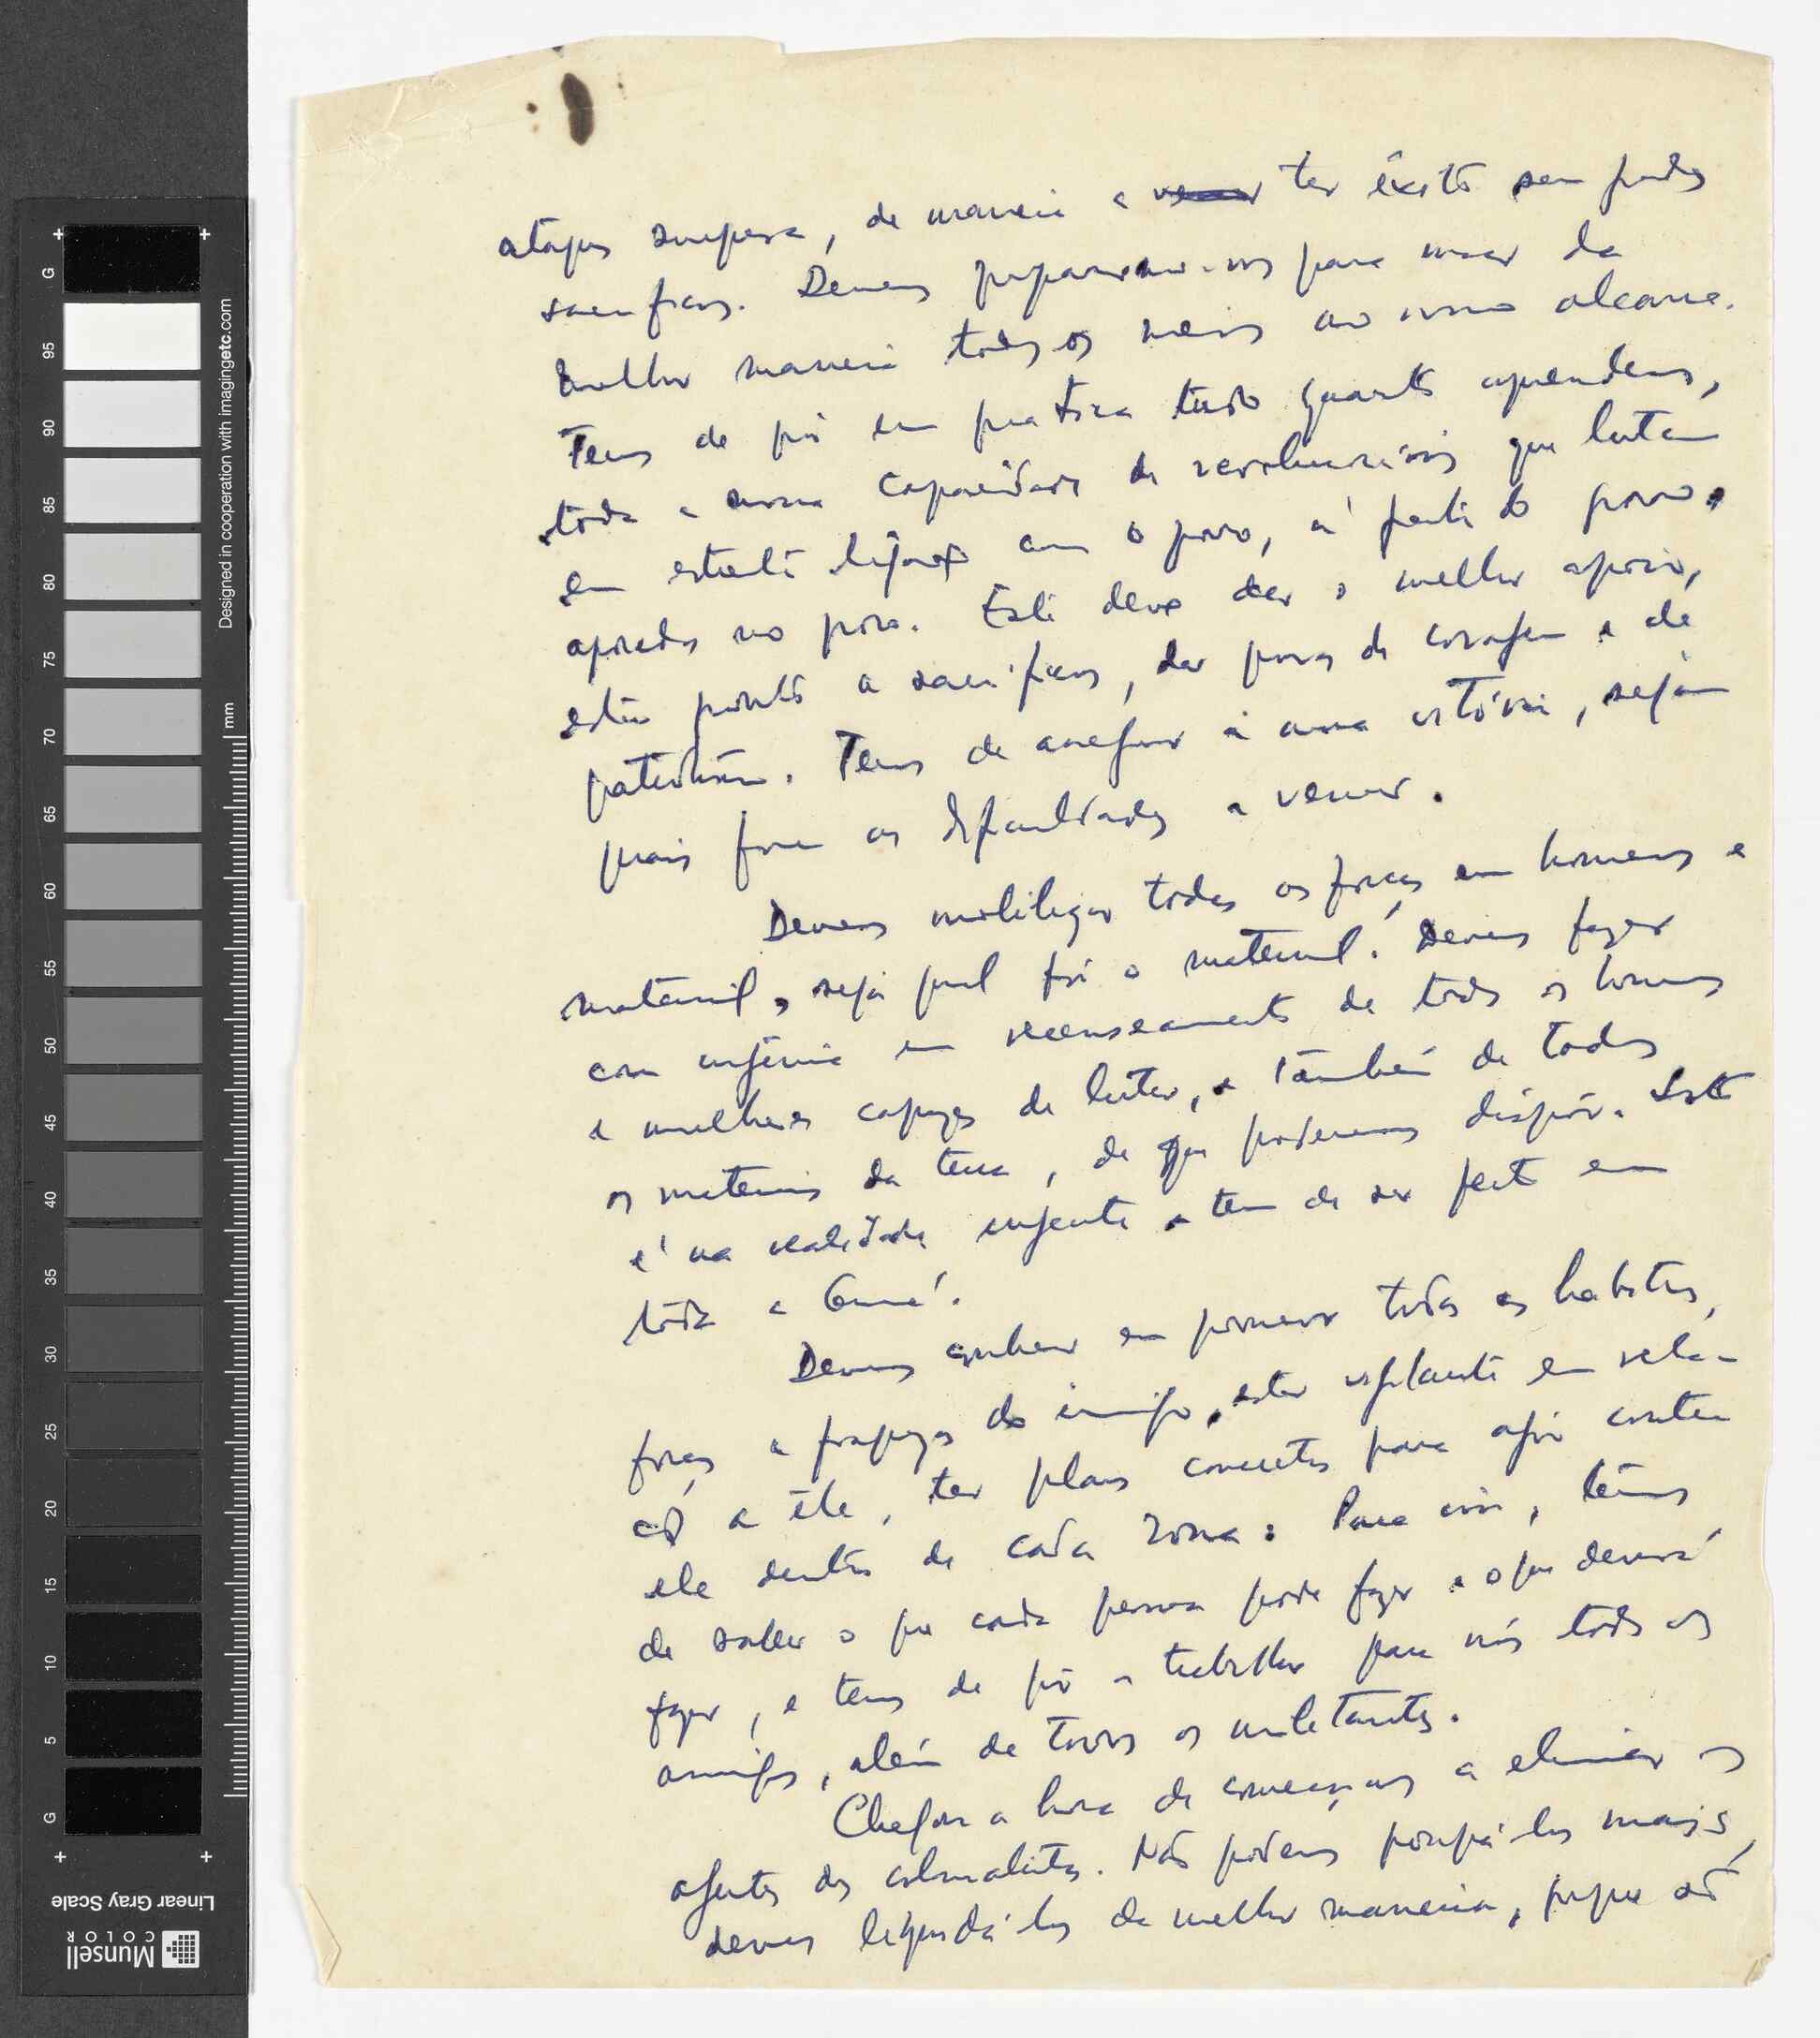 ataques surpresa, de maneira a vencer ter êxito sem grandes
sacrifícios. Devemos prepararmo-nos para usar da
melhor maneira todos os meios ao nosso alcance.
Temos de pôr em pratica tudo quanto aprendemos,
toda a nossa capacidade de revolucionários que lutam
em estreita ligação com o povo, à frente do povo,
apoiados no povo. Este deve dar o melhor apoio,
estar pronto a sacrifícios, dar provas de coragem e de
patriotismo. Temos de assegurar a nossa vitória, sejam
quais forem as dificuldades a vencer.
Devemos mobilizar todas as forças em homens e
material, seja qual fôr o material. Devemos fazer
com urgência um recenseamento de todos os homens
e mulheres capazes de lutar, e também de todos
os materiais da terra, de que poderemos dispôr. Isto
é na realidade urgente e tem de ser feito em
toda a Guiné.
Devemos conhecer em pormenor todos os habitos,
forças e fraquezas do inimigo, estar vigilante em rela-
ção a êle, ter planos concretos para agir contra
ele dentro de cada zona. Para isso, têmos
de saber o que cada pessoa pode fazer e o que deverá
fazer, e temos de pôr a trabalhar para nós todos os
amigos, além de todos os militantes.
Chegou a hora de começarmos a eliminar os
agentes dos colonialistas. Não podemos poupá-los mais,
devemos liquidá-los da melhor maneira, porque são
Designed in cooperation with imagingetc.com
mm
G 95 90 85 80 75 70 65 60 55 50 45 40 35 30 25 20 15 10 5 G
Linear Gray Scale
Munsell
COLOR